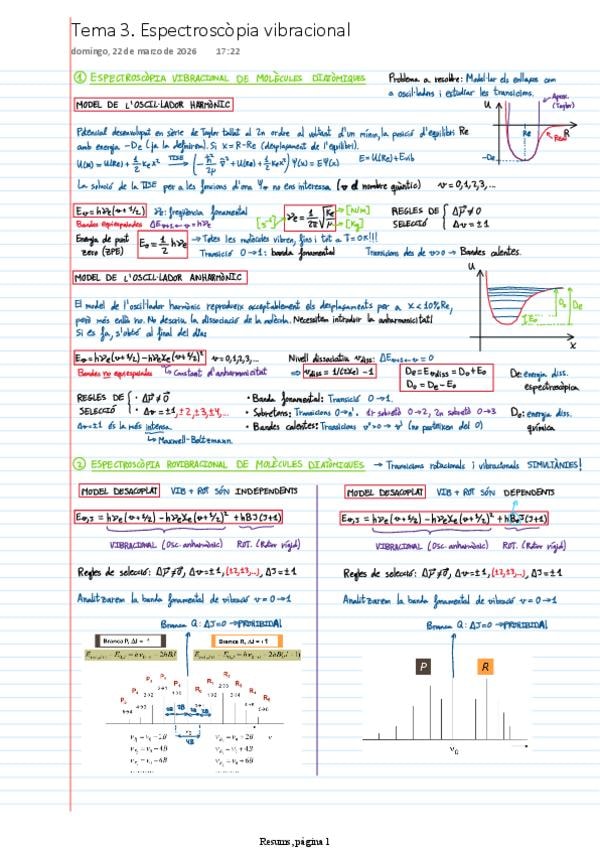 Tema 3. Espectroscòpia vibracional
domingo, 22 de marzo de 2026 17:22
① ESPECTROSCÒPIA VIBRACIONAL DE MOLÈCULES DIATÒMIQUES
Problema a resoldre: Model·lar els enllaços com
a oscil·ladors i estudiar les transicions.
MODEL DE L'OSCIL·LADOR HARMÒNIC
U
Aprox. (Taylor)
R
Re
Real
-De
Potencial desenvolupat en sèrie de Taylor tallat al 2n ordre al voltant d'un mínim, la posició d'equilibri Re
amb energia -De (ja la definirem). Si x=R-Re (desplaçament de l'equilibri).
E=U(Re)+Evib
La solució de la TISE per a les funcions d'ona Ψv no ens interessa (v el nombre quàntic) v=0,1,2,3,...
Ev=hνe(v+1/2) νe: freqüència fonamental
Bandes equiespaiades ΔEv+1←v=hνe
[s⁻¹] νe=1/2π √ke/μ [N/m] [Kg]
REGLES DE SELECCIÓ { Δp⃗≠0 Δv=±1
Energia de punt zero (ZPE) E0=1/2 hνe → Totes les molècules vibren, fins i tot a T=0K!!!
Transició 0→1: banda fonamental Transicions des de v>0 → Bandes calentes.
MODEL DE L'OSCIL·LADOR ANHARMÒNIC
U
x
E0
D0
De
El model de l'oscil·lador harmònic reprodueix acceptablement els desplaçaments per a x<10%Re,
però més enllà no. No descriu la dissociació de la molècula. Necessitem introduir la anharmonicitat!
Ev=hνe(v+1/2)-hνeXe(v+1/2)² v=0,1,2,3,...
Bandes no equiespaiades Constant d'anharmonicitat
Nivell dissociatiu vdiss: ΔEv+1←v=0
⇒ vdiss=1/(2Xe)-1
De=Evdiss=D0+E0
D0=De-E0
De: energia diss. espectroscòpica
D0: energia diss. química
REGLES DE SELECCIÓ { · Δp⃗≠0 · Δv=±1,±2,±3,±4,...
Δv=±1 és la més intensa
Maxwell-Boltzmann.
• Banda fonamental: Transició 0→1.
• Sobretons: Transicions 0→v'. 1r sobretó 0→2, 2n sobretó 0→3
• Bandes calentes: Transicions v''>0→v' (no parteixen del 0)
② ESPECTROSCÒPIA ROVIBRACIONAL DE MOLÈCULES DIATÒMIQUES → Transicions rotacionals i vibracionals SIMULTÀNIES!
MODEL DESACOPLAT VIB + ROT SÓN INDEPENDENTS
Ev,J=hνe(v+1/2)-hνeXe(v+1/2)²+hBJ(J+1)
VIBRACIONAL (Osc. anharmònic) ROT. (Rotor rígid)
Regles de selecció: Δp⃗≠0, Δv=±1,(±2,±3,...), ΔJ=±1
Analitzarem la banda fonamental de vibració v=0→1
Branca Q: ΔJ=0→PROHIBIDA!
Branca P, ΔJ = -1
Branca R, ΔJ = +1
2B
4B
MODEL DESACOPLAT VIB + ROT SÓN DEPENDENTS
Ev,J=hνe(v+1/2)-hνeXe(v+1/2)²+hBvJ(J+1)
VIBRACIONAL (Osc. anharmònic) ROT. (Rotor rígid)
Regles de selecció: Δp⃗≠0, Δv=±1,(±2,±3,...), ΔJ=±1
Analitzarem la banda fonamental de vibració v=0→1
Branca Q: ΔJ=0→PROHIBIDA!
P
R
ν0
Resums, página 1